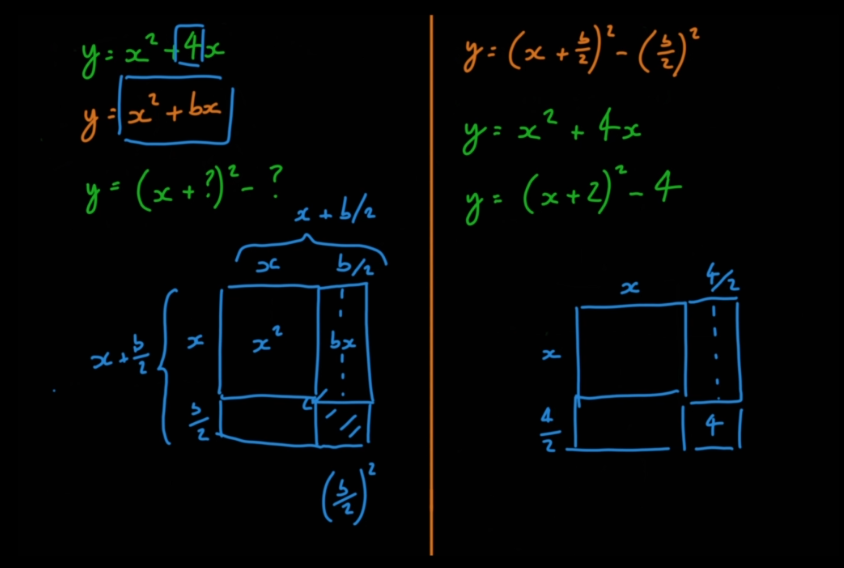 y = x² + 4x
y = x² + bx
y = (x + ?)² - ?
x + b/2
x b/2
x + b/2
x x² bx
b/2
(b/2)²
y = (x + b/2)² - (b/2)²
y = x² + 4x
y = (x + 2)² - 4
x 4/2
x
4/2 4